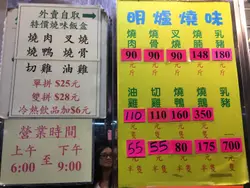 外賣自取
特價燒味飯盒
燒肉 叉燒
燒鴨 燒骨
切雞 油雞
單拼 $25元
雙拼 $28元
冷熱飲品加$6元
營業時間
上午 下午
6:00 至 9:00
明爐燒味
燒肉 燒骨 叉燒 燒腩 乳豬
90 90 90 148 180
元斤 元斤 元斤 元斤 元斤
油雞 切雞 燒鴨 燒鵝 乳豬
110 110 160 350
55 55 80 175 700